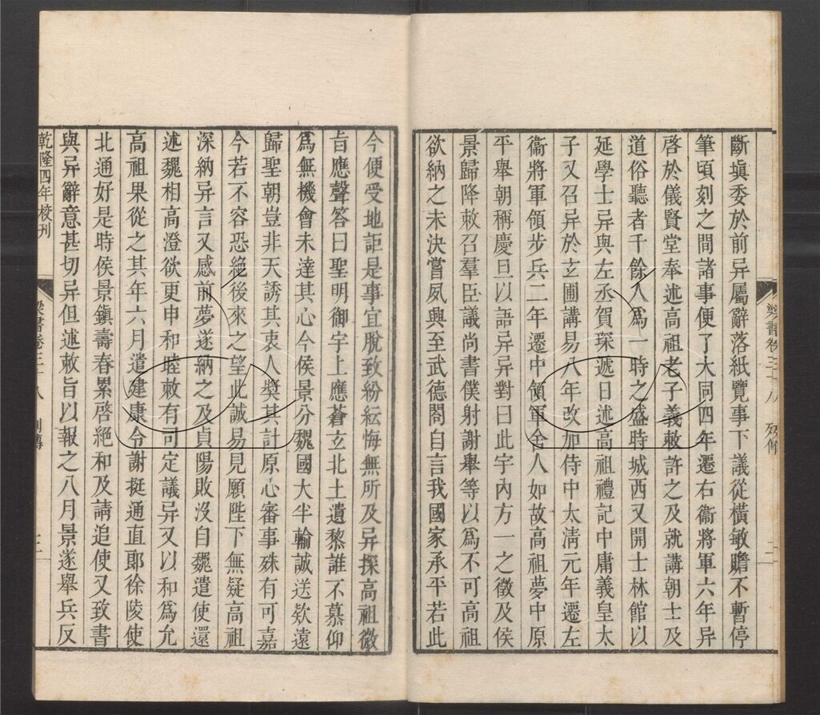 斷塡委於前异屬辭落紙覽事下議從橫敏贍不暫停
筆頃刻之間諸事便了大同四年遷右衞將軍六年异
啓於儀賢堂奉述高祖老子義敕許之及就講朝士及
道俗聽者千餘人爲一時之盛時城西又開士林館以
延學士异與左丞賀琛遞日述高祖禮記中庸義皇太
子又召异於玄圃講易八年改加侍中太清元年遷左
衞將軍領步兵二年遷中領軍舍人如故高祖夢中原
平舉朝稱慶旦以語异异對曰此宇內方一之徵及侯
景歸降敕召羣臣議尚書僕射謝舉等以爲不可高祖
欲納之未決嘗夙興至武德閤自言我國家承平若此
今便受地詎是事宜脫致紛紜悔無所及异探高祖微
旨應聲答曰聖明御宇上應蒼玄北土遺黎誰不慕仰
爲無機會未達其心今侯景分魏國大半輸誠送款遠
歸聖朝豈非天誘其衷人奬其計原心審事殊有可嘉
今若不容恐絶後來之望此誠易見願陛下無疑高祖
深納异言又感前夢遂納之及貞陽敗沒自魏遣使還
述魏相高澄欲更申和睦敕有司定議异又以和爲允
高祖果從之其年六月遣建康令謝挺通直郞徐陵使
北通好是時侯景鎭壽春累啓絶和及請追使又致書
與异辭意甚切异但述敕旨以報之八月景遂舉兵反
乾隆四年校刊
梁書卷三十八 列傳